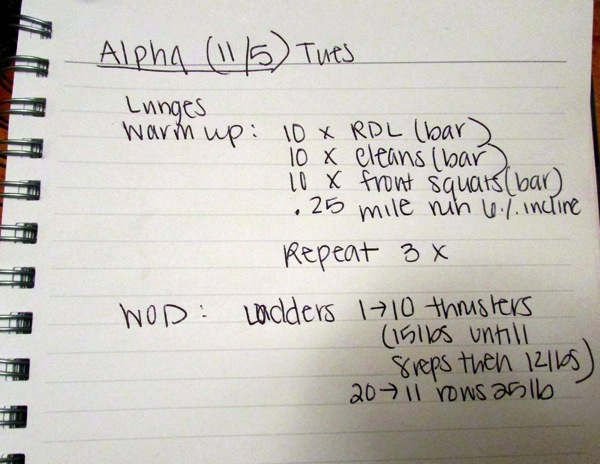 Alpha (11/5) Tues
Lunges
Warm up: 10 x RDL (bar)
10 x cleans (bar)
10 x front squats (bar)
.25 mile run 6% incline
Repeat 3 x
WOD: Ladders 1→10 thrusters
(15lbs untill
8reps then 12lbs)
20→11 rows 25lb